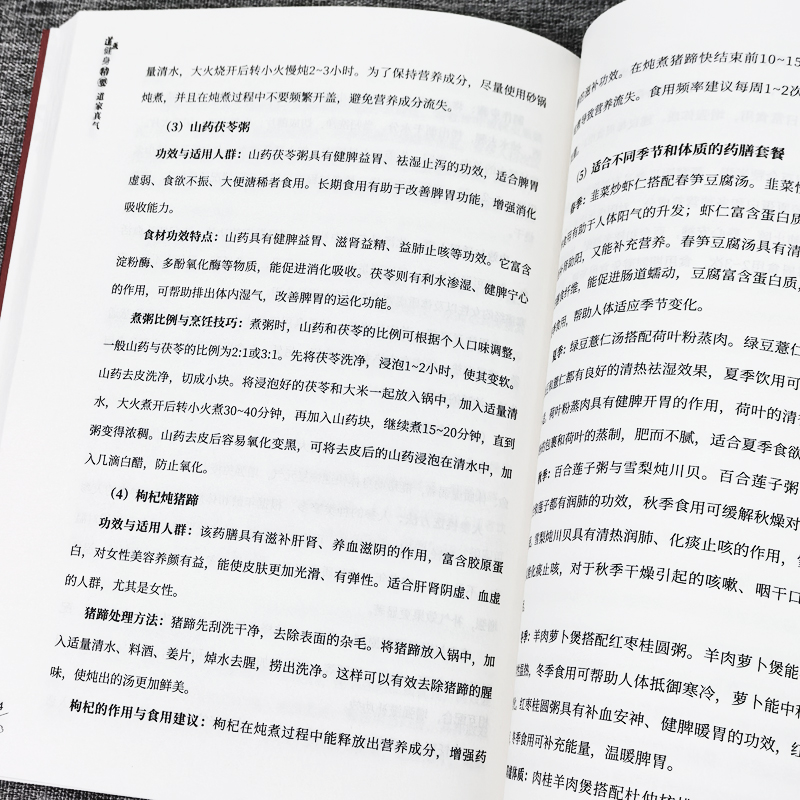 健身精要 道家真气
量清水，大火烧开后转小火慢炖2~3小时。为了保持营养成分，尽量使用砂锅
炖煮，并且在炖煮过程中不要频繁开盖，避免营养成分流失。
（3）山药茯苓粥
功效与适用人群：山药茯苓粥具有健脾益胃、祛湿止泻的功效，适合脾胃
虚弱、食欲不振、大便溏稀者食用。长期食用有助于改善脾胃功能，增强消化
吸收能力。
食材功效特点：山药具有健脾益胃、滋肾益精、益肺止咳等功效。它富含
淀粉酶、多酚氧化酶等物质，能促进消化吸收。茯苓则有利水渗湿、健脾宁心
的作用，可帮助排出体内湿气，改善脾胃的运化功能。
煮粥比例与烹饪技巧：煮粥时，山药和茯苓的比例可根据个人口味调整，
一般山药与茯苓的比例为2:1或3:1。先将茯苓洗净，浸泡1~2小时，使其变软。
山药去皮洗净，切成小块。将浸泡好的茯苓和大米一起放入锅中，加入适量清
水，大火煮开后转小火煮30~40分钟，再加入山药块，继续煮15~20分钟，直到
粥变得浓稠。山药去皮后容易氧化变黑，可将去皮后的山药浸泡在清水中，加
入几滴白醋，防止氧化。
（4）枸杞炖猪蹄
功效与适用人群：该药膳具有滋补肝肾、养血滋阴的作用，富含胶原蛋
白，对女性美容养颜有益，能使皮肤更加光滑、有弹性。适合肝肾阴虚、血虚
的人群，尤其是女性。
猪蹄处理方法：猪蹄先刮洗干净，去除表面的杂毛。将猪蹄放入锅中，加
入适量清水、料酒、姜片，焯水去腥，捞出洗净。这样可以有效去除猪蹄的腥
味，使炖出的汤更加鲜美。
枸杞的作用与食用建议：枸杞在炖煮过程中能释放出营养成分，增强药
滋补功效。在炖煮猪蹄快结束前10~15
导致营养流失。食用频率建议每周1~2次
（5）适合不同季节和体质的药膳套餐
春季：韭菜炒虾仁搭配春笋豆腐汤。韭菜性
食用有助于人体阳气的升发；虾仁富含蛋白质
助阳，又能补充营养。春笋豆腐汤具有清
膳食纤维，能促进肠道蠕动，豆腐富含蛋白质，
食用，帮助人体适应季节变化。
夏季：绿豆薏仁汤搭配荷叶粉蒸肉。绿豆薏仁
薏仁都有良好的清热祛湿效果，夏季饮用可
荷叶粉蒸肉具有健脾开胃的作用，荷叶的清香
包裹和荷叶的蒸制，肥而不腻，适合夏季食欲
季：百合莲子粥与雪梨炖川贝。百合莲子粥
莲子都有润肺的功效，秋季食用可缓解秋燥对
雪梨炖川贝具有清热润肺、化痰止咳的作用，
化痰止咳，对于秋季干燥引起的咳嗽、咽干口
季：羊肉萝卜煲搭配红枣桂圆粥。羊肉萝卜煲能
性温热，冬季食用可帮助人体抵御寒冷，萝卜能中和
红枣桂圆粥具有补血安神、健脾暖胃的功效，红
冬季食用可补充能量，温暖脾胃。
体质：肉桂羊肉煲搭配杜仲核桃